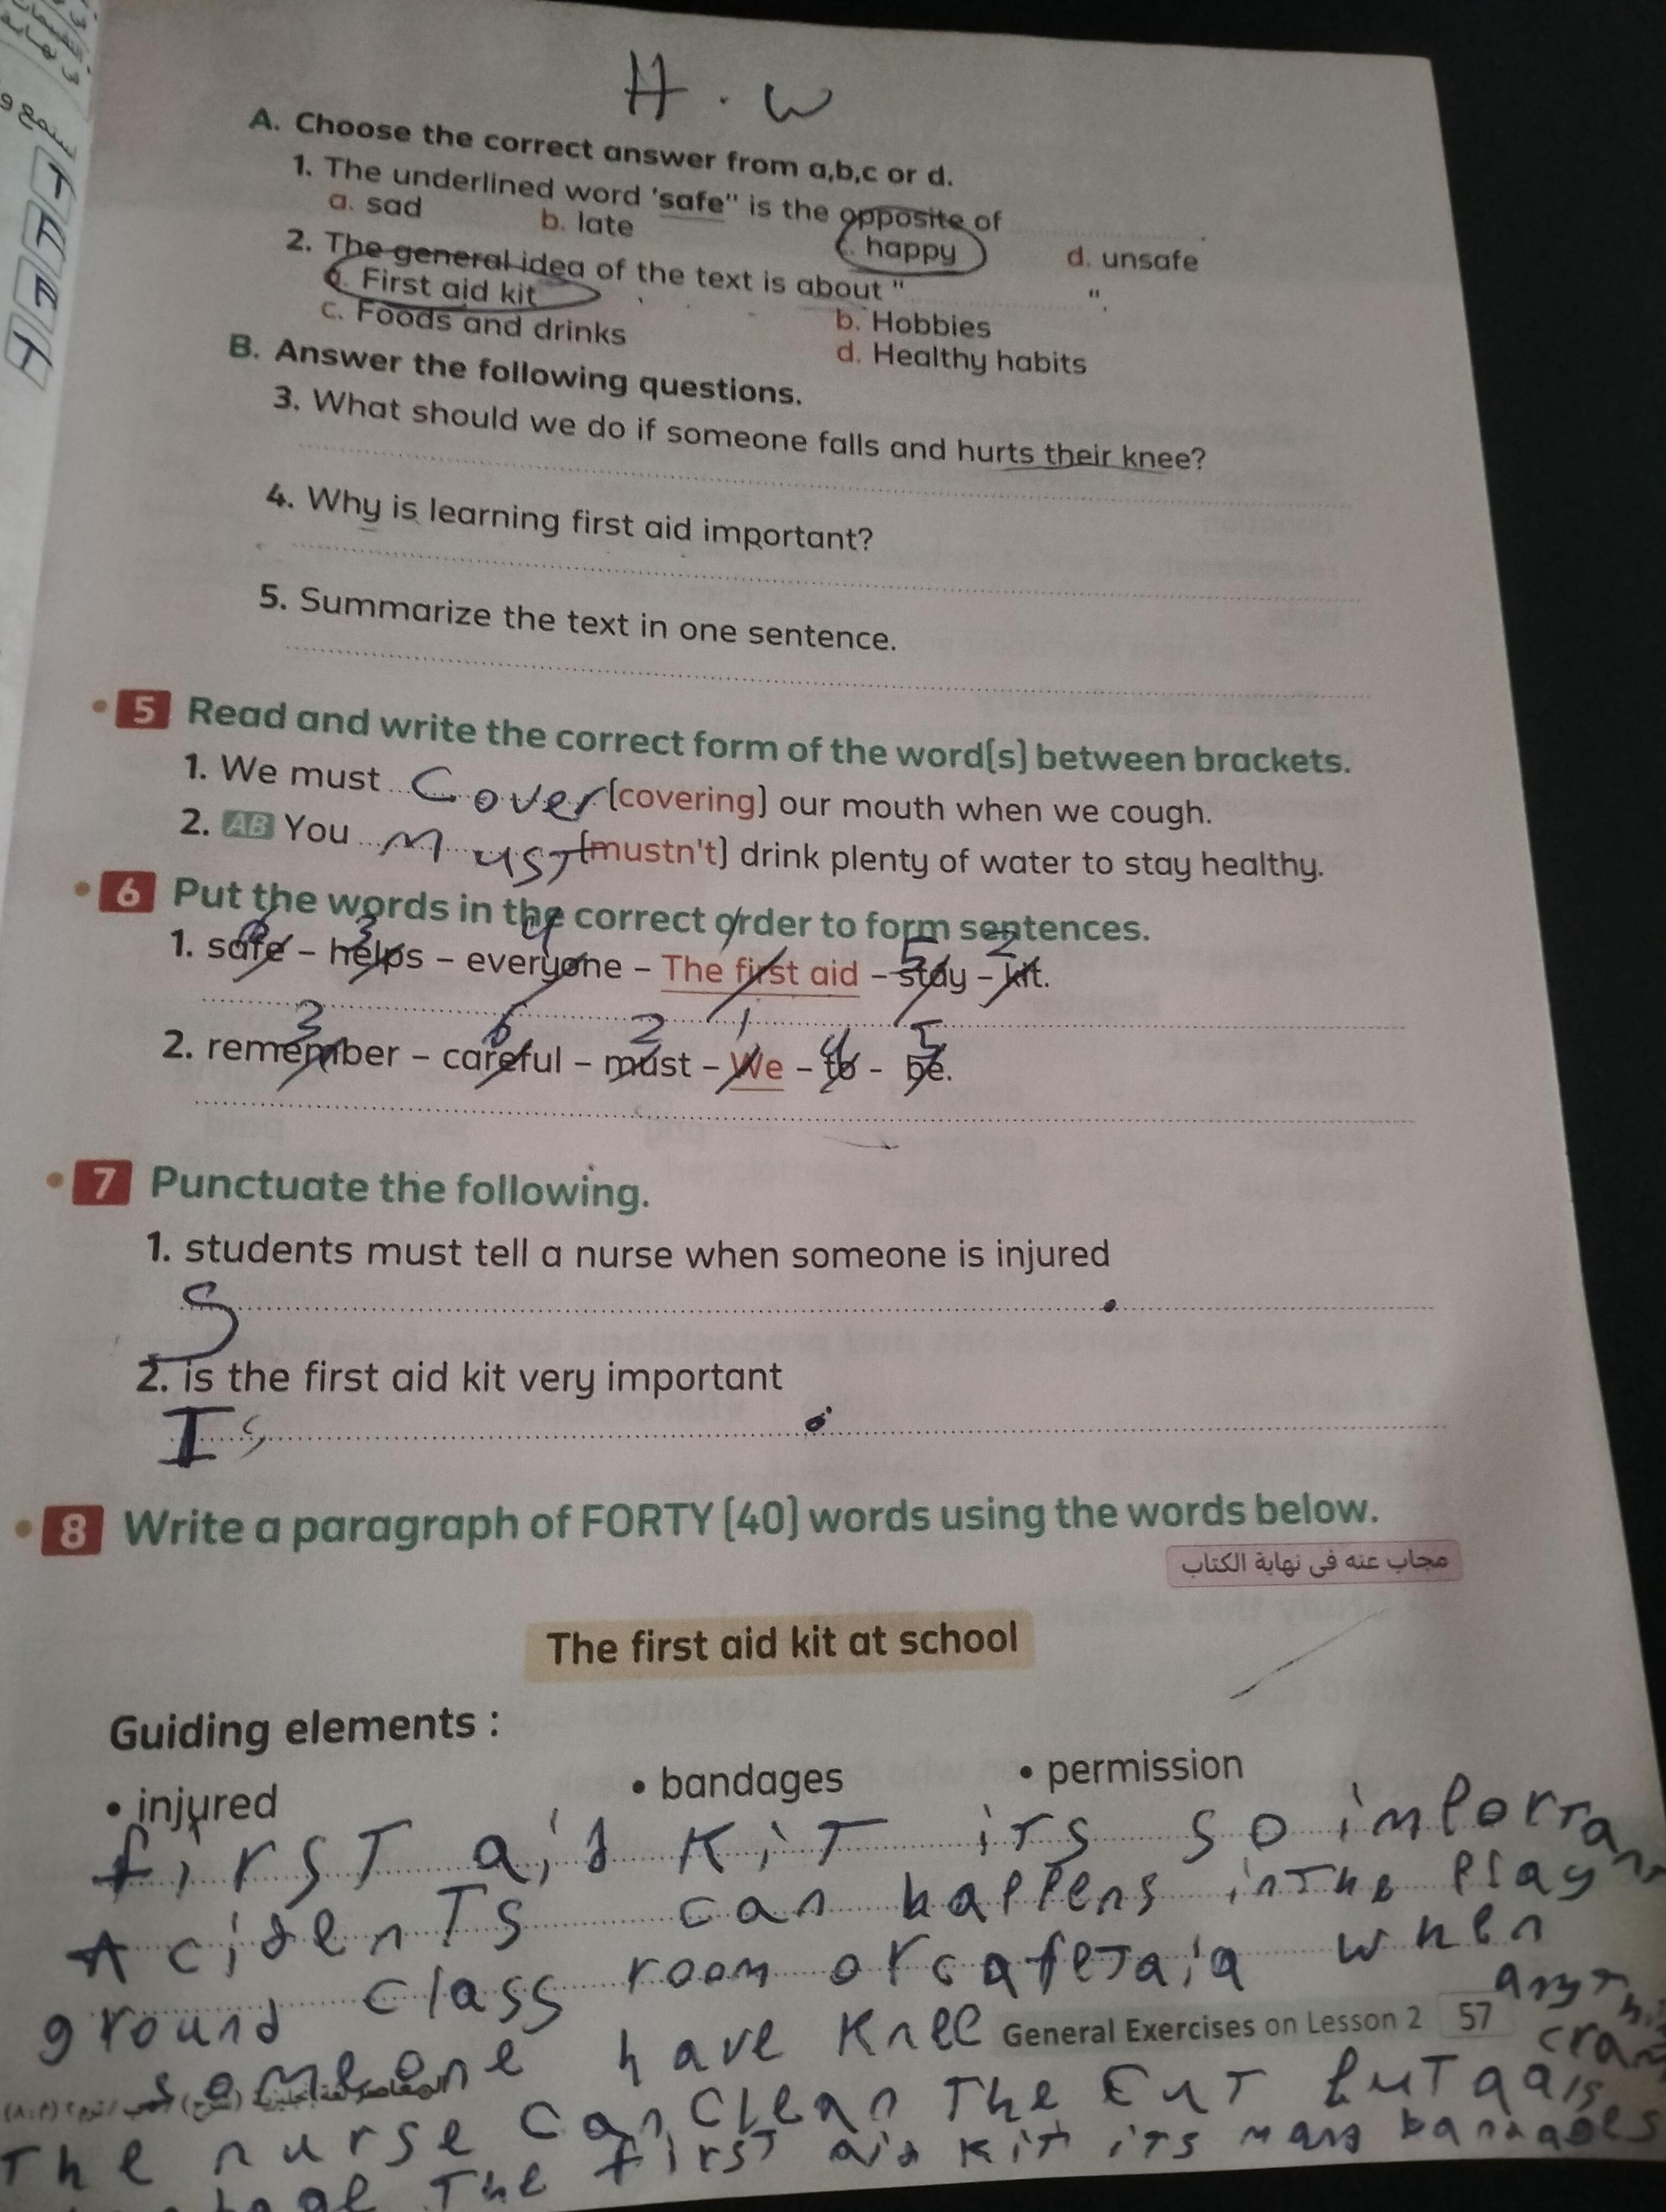 H.w
A. Choose the correct answer from a,b,c or d.
1. The underlined word 'safe" is the opposite of
a. sad b. late happy d. unsafe
2. The general idea of the text is about " ".
a. First aid kit b. Hobbies
c. Foods and drinks d. Healthy habits
B. Answer the following questions.
3. What should we do if someone falls and hurts their knee?
4. Why is learning first aid important?
5. Summarize the text in one sentence.
5 Read and write the correct form of the word(s) between brackets.
1. We must Cover (covering) our mouth when we cough.
2. AB You MUST (mustn't) drink plenty of water to stay healthy.
6 Put the words in the correct order to form sentences.
6 3 4 1 5 2
1. safe – helps – everyone – The first aid – stay – kit.
3 6 2 1 4 5
2. remember – careful – must – We – to - be.
7 Punctuate the following.
1. students must tell a nurse when someone is injured
S .
2. is the first aid kit very important
Is
8 Write a paragraph of FORTY (40) words using the words below.
مجاب عنه فى نهاية الكتاب
The first aid kit at school
Guiding elements :
• injured • bandages • permission
firST aid KiT iTs so imporTanT
AcidenTs can happens inThe Play
ground class room or cafeTaia when
someone have Knee
General Exercises on Lesson 2 57
The nurse can clean The
The firsT aid kiT iTs many bandages